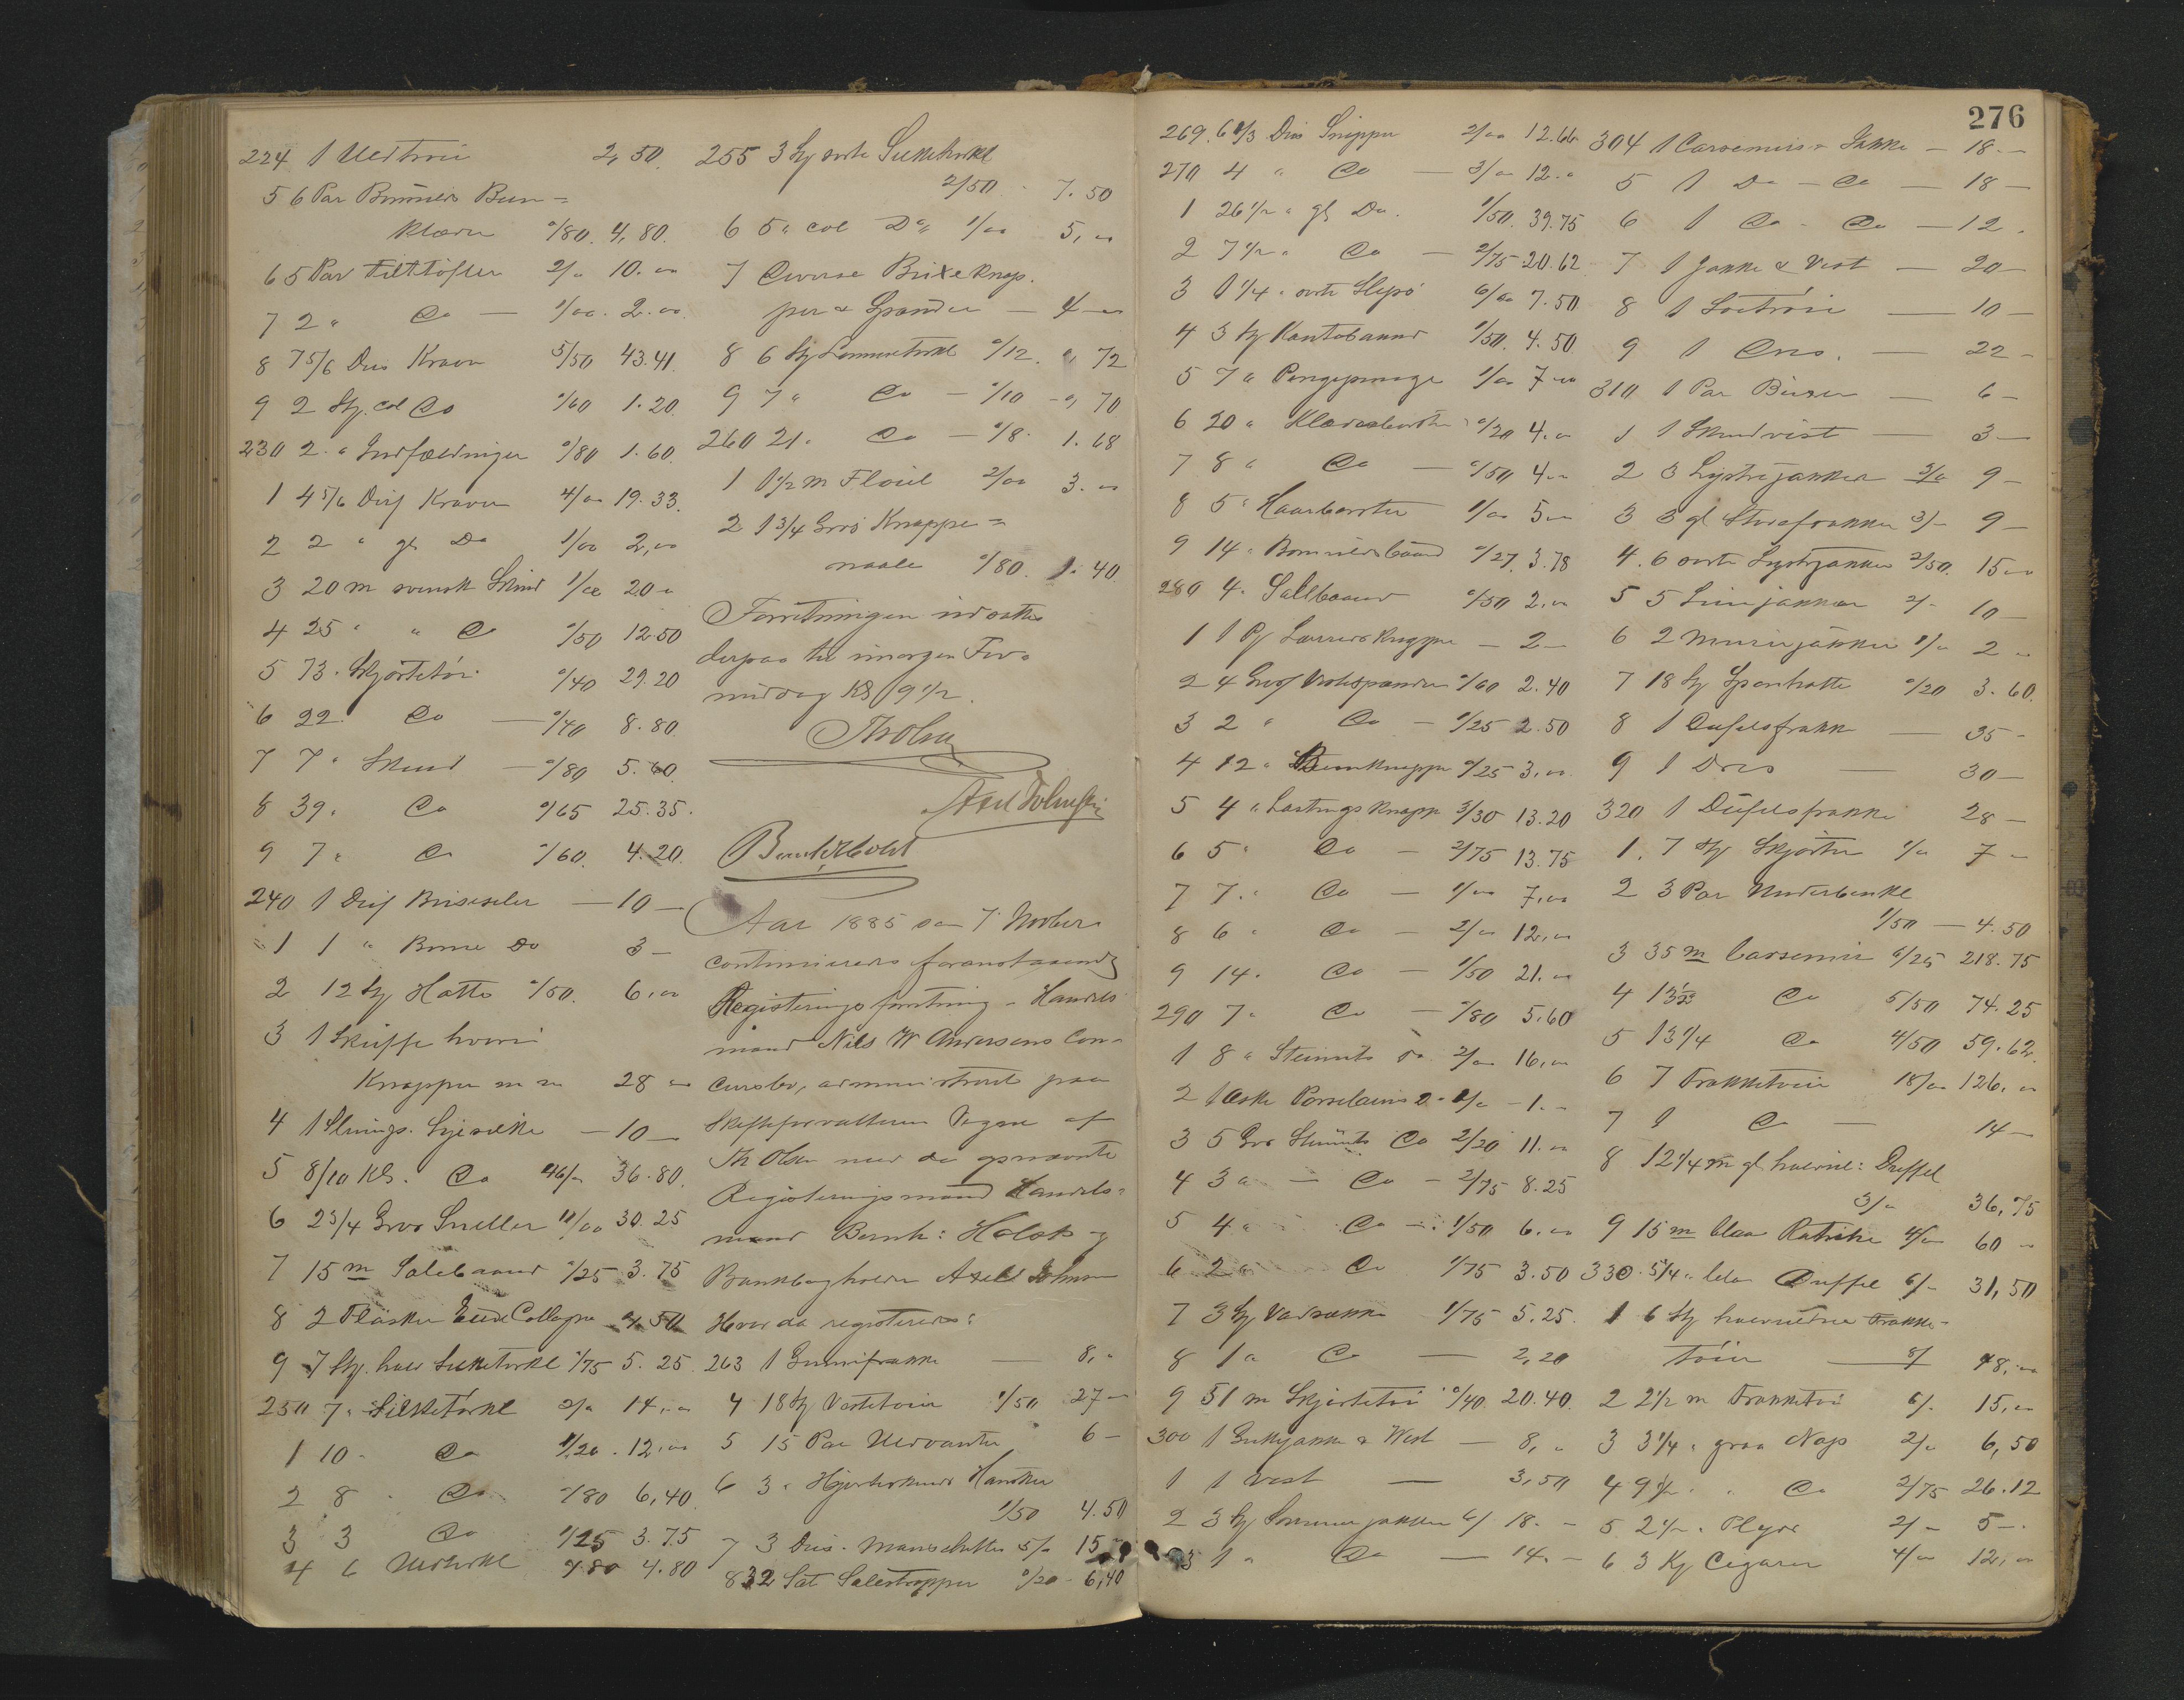 224 1 Uldtroie 2,50
5 6 Par Bommuls Ben=
klæder °/80. 4,80.
6 5 Par Filttöfler 2/" 10."
7 2 " Do — 1/00. 2."
8 7 5/6 Dus Kraver 5/50 43.41.
9 2 Stk. col Do °/60 1.20.
230 2 " Indfældninger °/80 1.60.
1 4 5/6 Dus Kraver 4/00 19.33.
2 2 " gl Do 1/00 2,00
3 20 m svensk Skind 1/00 20 "
4 25 " " Do °/50 12.50
5 73 " Skjortetöi °/40 29.20
6 22 " Do — °/40 8.80.
7 7 " Skind — °/80 5.60.
8 39 " Do °/65 25.35.
9 7 " Do °/60. 4.20.
240 1 Dus — 10 —
1 1 " Do 3 —
2 12 Stk Hatte °/50. 6,00
3 1 Skuffe hvori
Knapper m m 28 "
4 1 — 10 —
5 8/10 Kg. Do 46/" 36.80.
6 2 3/4 Gros Sneller 11/00 30.25
7 15 m Salebaand °/25 3.75
8 2 Flasker Eau de Collogne 50
9 7 Stk. halv Silketörkl °/75 5.25
250 7 " Silketörkl 2/" 14,"
1 10 " Do 1/20. 12,00
2 8 " Do °/80 6,40
3 3 Do 1/25 3.75
4 6 Uldtörkl °/80 4.80
255 3 Stk sorte Silketörkl
2/50 7.50
6 5 " col Do 1/00 5,"
7 Diverse Buxeknap-
per & Spænder — 4 —
8 6 Stk Lommetörkl °/12. ", 72
9 7 " Do — °/10 — ", 70
260 21 " Do — °/8. 1.68
1 1 1/2 m Flöiel 2/00 3."
2 1 3/4 Gros Knappe=
naale °/80. 1.40.
Forretningen udsattes
derpaa til imorgen For-
middag Kl 9 1/2
Th Olsen
Axel Johnsen
Bernh Holst
Aar 1885 den 7 Novbr
continueredes foranstaaende
Registreringsforretning i Handels-
mand Nils W Andersens Con-
cursbo, administreret paa
Skifteforvalterens Vegne af
Th Olsen med de opnævnte
Registreringsmænd Handels=
mand Bernh: Holst og
Bankbogholder Axel Johnsen
Hvor da registreredes:
263 1 Gumifrakke — 8,"
4 18 Stk Vestetöier 1/50 27 —
5 15 Par Uldvanter 6 —
6 3 " Hjorteskinds Hansker
1/50 4.50
7 3 Dus. Manschetter 5/" 15
8 32 Sæt °/20 — 6,40
276
269. 6 1/3 Dus Snipper 2/00 12.66
270 4 " Do — 3/" 12."
1 26 1/2 " gl Do. 1/50. 39.75
2 7 1/2 " Do — 2/75 20.62
3 1 1/4 " sorte Slips 6/00 7.50
4 3 Stk Kantebaand 1/50. 4.50
5 7 " Pengepunge 1/00 7 "
6 20 " Klædesbørster °/20 4."
7 8 " Do — °/50 4 "
8 5 " Haarbørster 1/00 5 "
9 14 " Bomuldsbaand °/27. 3.78
280 4 " °/50 2,"
1 1 — 2 —
2 4 Gros Vestspænder °/60 2.40
3 2 " Do — 1/25 2.50
4 12 " Benknapper °/25 3,"
5 4 " Lastings Knapper 3/30 13.20
6 5 " Do — 2/75 13.75
7 7 " Do — 1/00 7,00
8 6 " Do — 2/" 12,"
9 14 " Do — 1/50 21."
290 7 " Do — °/80 5.60
1 8 " Steinnuts Do 2/" 16,"
2 1 Æske Porcelains Do — 1."
3 5 Gros Steinnuts Do 2/20 11."
4 3 " — Do — 2/75 8.25
5 4 " Do — 1/50 6,"
6 2 " Do 1/75 3.50
7 3 Stk Vadsække 1/75 5.25.
8 1 " Do — 2,20
9 51 m Skjortetöi °/40. 20.40.
300 1 Bukjakke & Vest — 8,"
1 1 Vest — 3,50
2 3 Stk Sommerjakker 6/ 18. —
3 1 " Do — 14. —
304 1 Carsemirs Jakke — 18 —
5 1 Do — Do — 18 —
6 1 Do — Do — 12.
7 1 Jakke & Vest — 20 —
8 1 — 10 —
9 1 Dres. — 22 —
310 1 Par Buxer — 6 —
1 1 Skindvest — 3 —
2 3 Lystrejakker 3/" 9 —
3 3 gl Stovefrakker 3/— 9 —
4. 6 sorte Lystrejakker 2/50. 15 "
5 5 Linjakker 2/— 10 —
6 2 Murerjakker 1/" 2 "
7 18 Stk °/20 3.60.
8 1 Duffelsfrakke — 35 —
9 1 Dres — 30 —
320 1 Düffelsfrakke 28 —
1. 7 Stk Skjorter 1/" 7 —
2 3 Par Underbenkl
1/50 — 4.50
3 35 m Carsemir 6/25 218.75
4 13 1/2 Do 5/50 74.25
5 13 1/4 Do 4/50 59.62.
6 7 Frakketöier 18/00 126,"
7 1 Do — 14 —
8 12 1/4 m gl. halvul: Duffel
3/" 36,75
9 15 m blaa Ratiné 4/" 60 —
330. 5 1/4 " blaa Duffel 6/— 31,50
1 6 Stk halvuldne Frakke-
töier — 8/ 48,"
2 2 1/2 m Frakketöi 6/. 15,"
3 3 1/4 " graa Nap 2/" 6,50
4 9 1/2 " " Do 2/75 26.12
5. 2 1/2 " Plyds 2/— 5 —.
6 3 Kg Cigarer 4/00 12,"